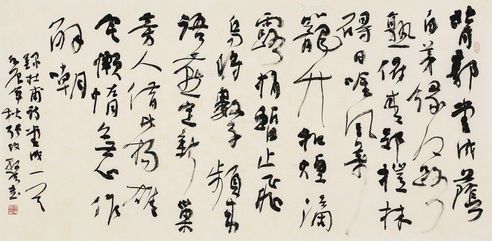 背郭堂成蔭
白茅緣江路
熟俯青郊榿林
礙日吟風葉
籠竹和煙滴
露梢暫止飛
烏將數子頻來
語燕定新巢
旁人錯比揚雄
宅懶惰無心作
解嘲
錄杜甫詩堂成一首
年秋張改琴